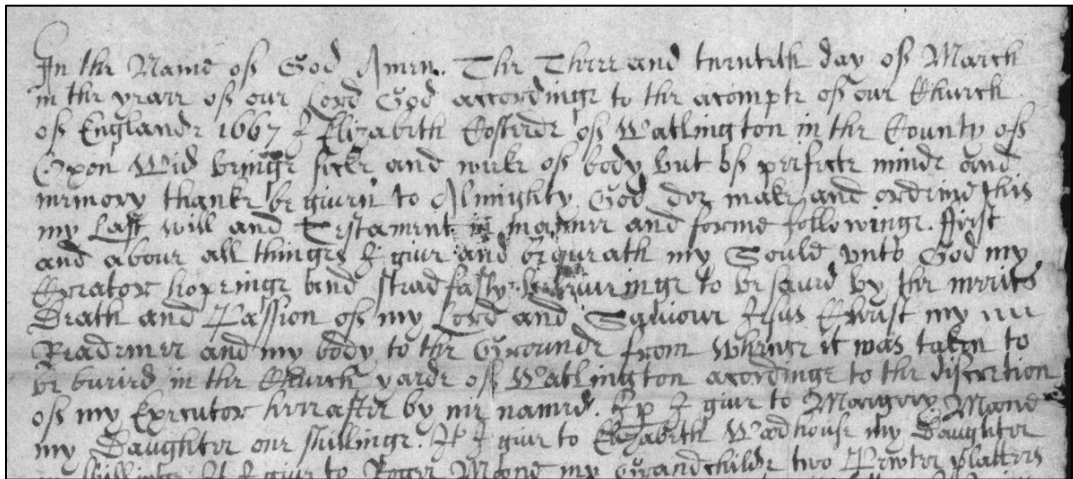 In the Name of God Amen. The Three and twentith day of March
in the yeare of our Lord God accordinge to the acompte of our Church
of Englande 1667 I Elizabeth Costerde of Watlington in the County of
Oxon Wid beinge sicke and weeke of body but of perfecte minde and
memory thanke be given to Almighty God doe make and ordeine this
my Last will and Testament in manner and forme followinge. first
and above all things I give and bequeath my Soule unto God my
Creator hopeinge and steadfastly beleivinge to be saved by the merits
Death and Passion of my Lord and Saviour Jesus Christ my
Reademer and my body to the Grounde from whence it was taken to
be buried in the Church yarde of Watlington acordinge to the discretion
of my Executor hereafter by me named. Ip I give to Margery Mane
my Daughter one shillinge. It I give to Elizabeth Wadhouse my Daughter
shillinge It I give to Roger Moone my Grandchilde two Pewter platters